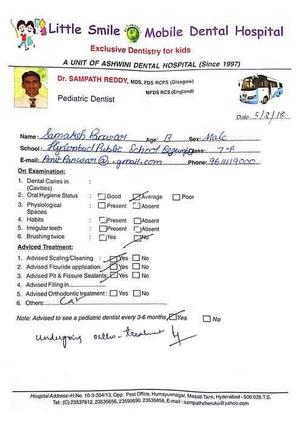 Little Smile Mobile Dental Hospital
Exclusive Dentistry for kids
A UNIT OF ASHWINI DENTAL HOSPITAL (Since 1997)
Dr. SAMPATH REDDY, MDS, FDS RCPS (Glasgow)
MFDS RCS (England)
Pediatric Dentist
Date: 5/2/18
Name: Samarth Panwar Age: 13 Sex: Male
School: Hyderabad Public School Class: 7-F
E-mail: @gmail.com Phone: 9611119000
On Examination:
1. Dental Caries in :
(Cavities)
2. Oral Hygiene Status : Good Average Poor
3. Physiological : Present Absent
Spaces
4. Habits : Present Absent
5. Irregular teeth : Present Absent
6. Brushing twice : Yes No
Adviced Treatment:
1. Advised Scaling/Cleaning : Yes No
2. Advised Flouride application: Yes No
3. Advised Pit & Fissure Sealants: Yes No
4. Advised Filling in
5. Advised Orthodontic treatment : Yes No
6. Others:
Note: Advised to see a pediatric dentist every 3-6 months. Yes No
undergoing ortho-treatment
Hospital Address:-H.No. 10-3-304/13, Opp: Post Office, Humayunagar, Masab Tank, Hyderabad - 500 028 T.S.
Tel: (C) 23537612, 23535656, 23590690, 23535858. E-mail: sampathcheruku@yahoo.com